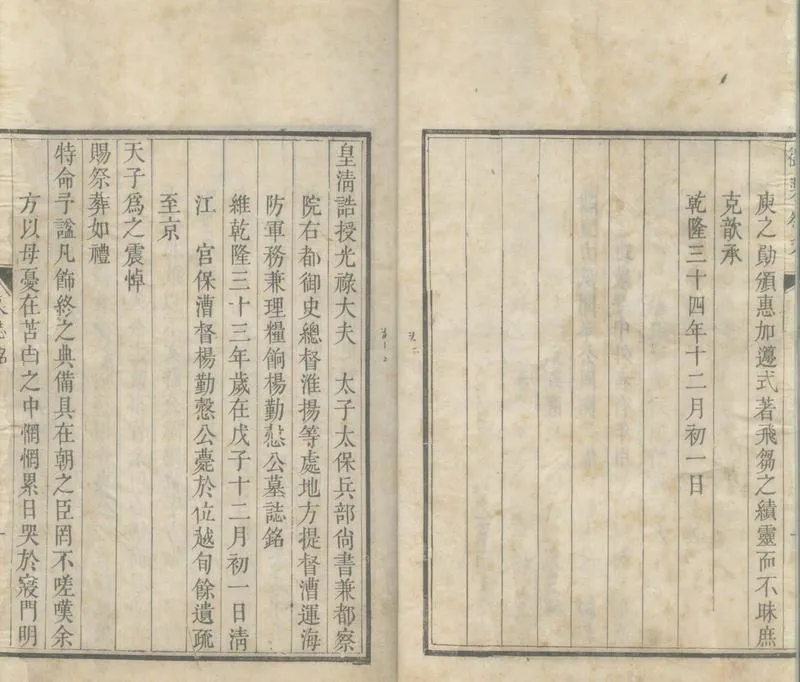 庾之勛頒惠加籩式著飛芻之績靈而不昧庶
克歆承
乾隆三十四年十二月初一日
皇清誥授光祿大夫　太子太保兵部尙書兼都察
院右都御史總督淮揚等處地方提督漕運海
防軍務兼理糧餉楊勤慤公墓誌銘
維乾隆三十三年歲在戊子十二月初一日淸
江　宮保漕督楊勤慤公薨於位越旬餘遺疏
至京
天子爲之震悼
賜祭葬如禮
特命予諡凡飾終之典備具在朝之臣罔不嗟嘆余
方以母憂在苫凷之中惘惘累日哭於寢門明